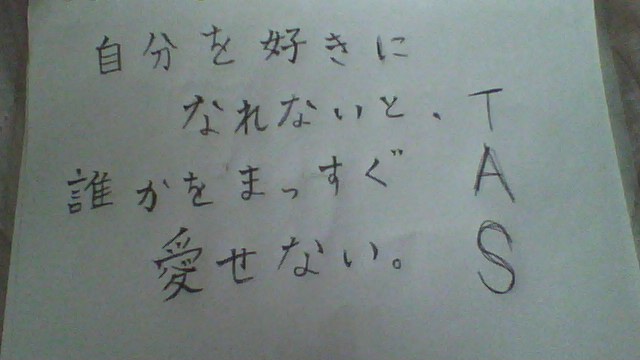 自分を好きに
なれないと、
誰かをまっすぐ
愛せない。
T
A
S